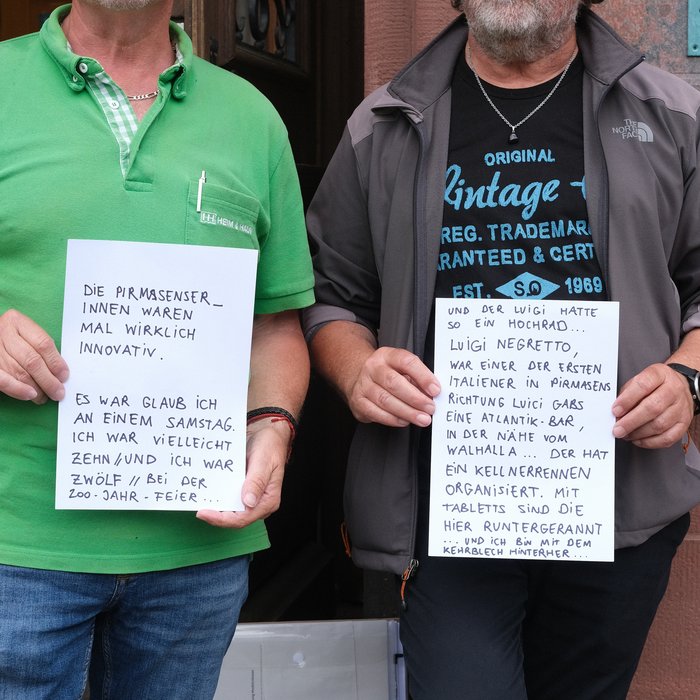 HEIM & HAUS
DIE PIRMASENSER_
INNEN WAREN
MAL WIRKLICH
INNOVATIV.
ES WAR GLAUB ICH
AN EINEM SAMSTAG.
ICH WAR VIELLEICHT
ZEHN // UND ICH WAR
ZWÖLF // BEI DER
200-JAHR-FEIER...
THE
NORTH
FACE
ORIGINAL
Vintage
REG. TRADEMAR
ARANTEED & CERT
EST. S.O 1969
UND DER LUIGI HATTE
SO EIN HOCHRAD...
LUIGI NEGRETTO,
WAR EINER DER ERSTEN
ITALIENER IN PIRMASENS
RICHTUNG LUICI GABS
EINE ATLANTIK-BAR,
IN DER NÄHE VOM
WALHALLA... DER HAT
EIN KELLNERRENNEN
ORGANISIERT. MIT
TABLETTS SIND DIE
HIER RUNTERGERANNT
... UND ICH BIN MIT DEM
KEHRBLECH HINTERHER...